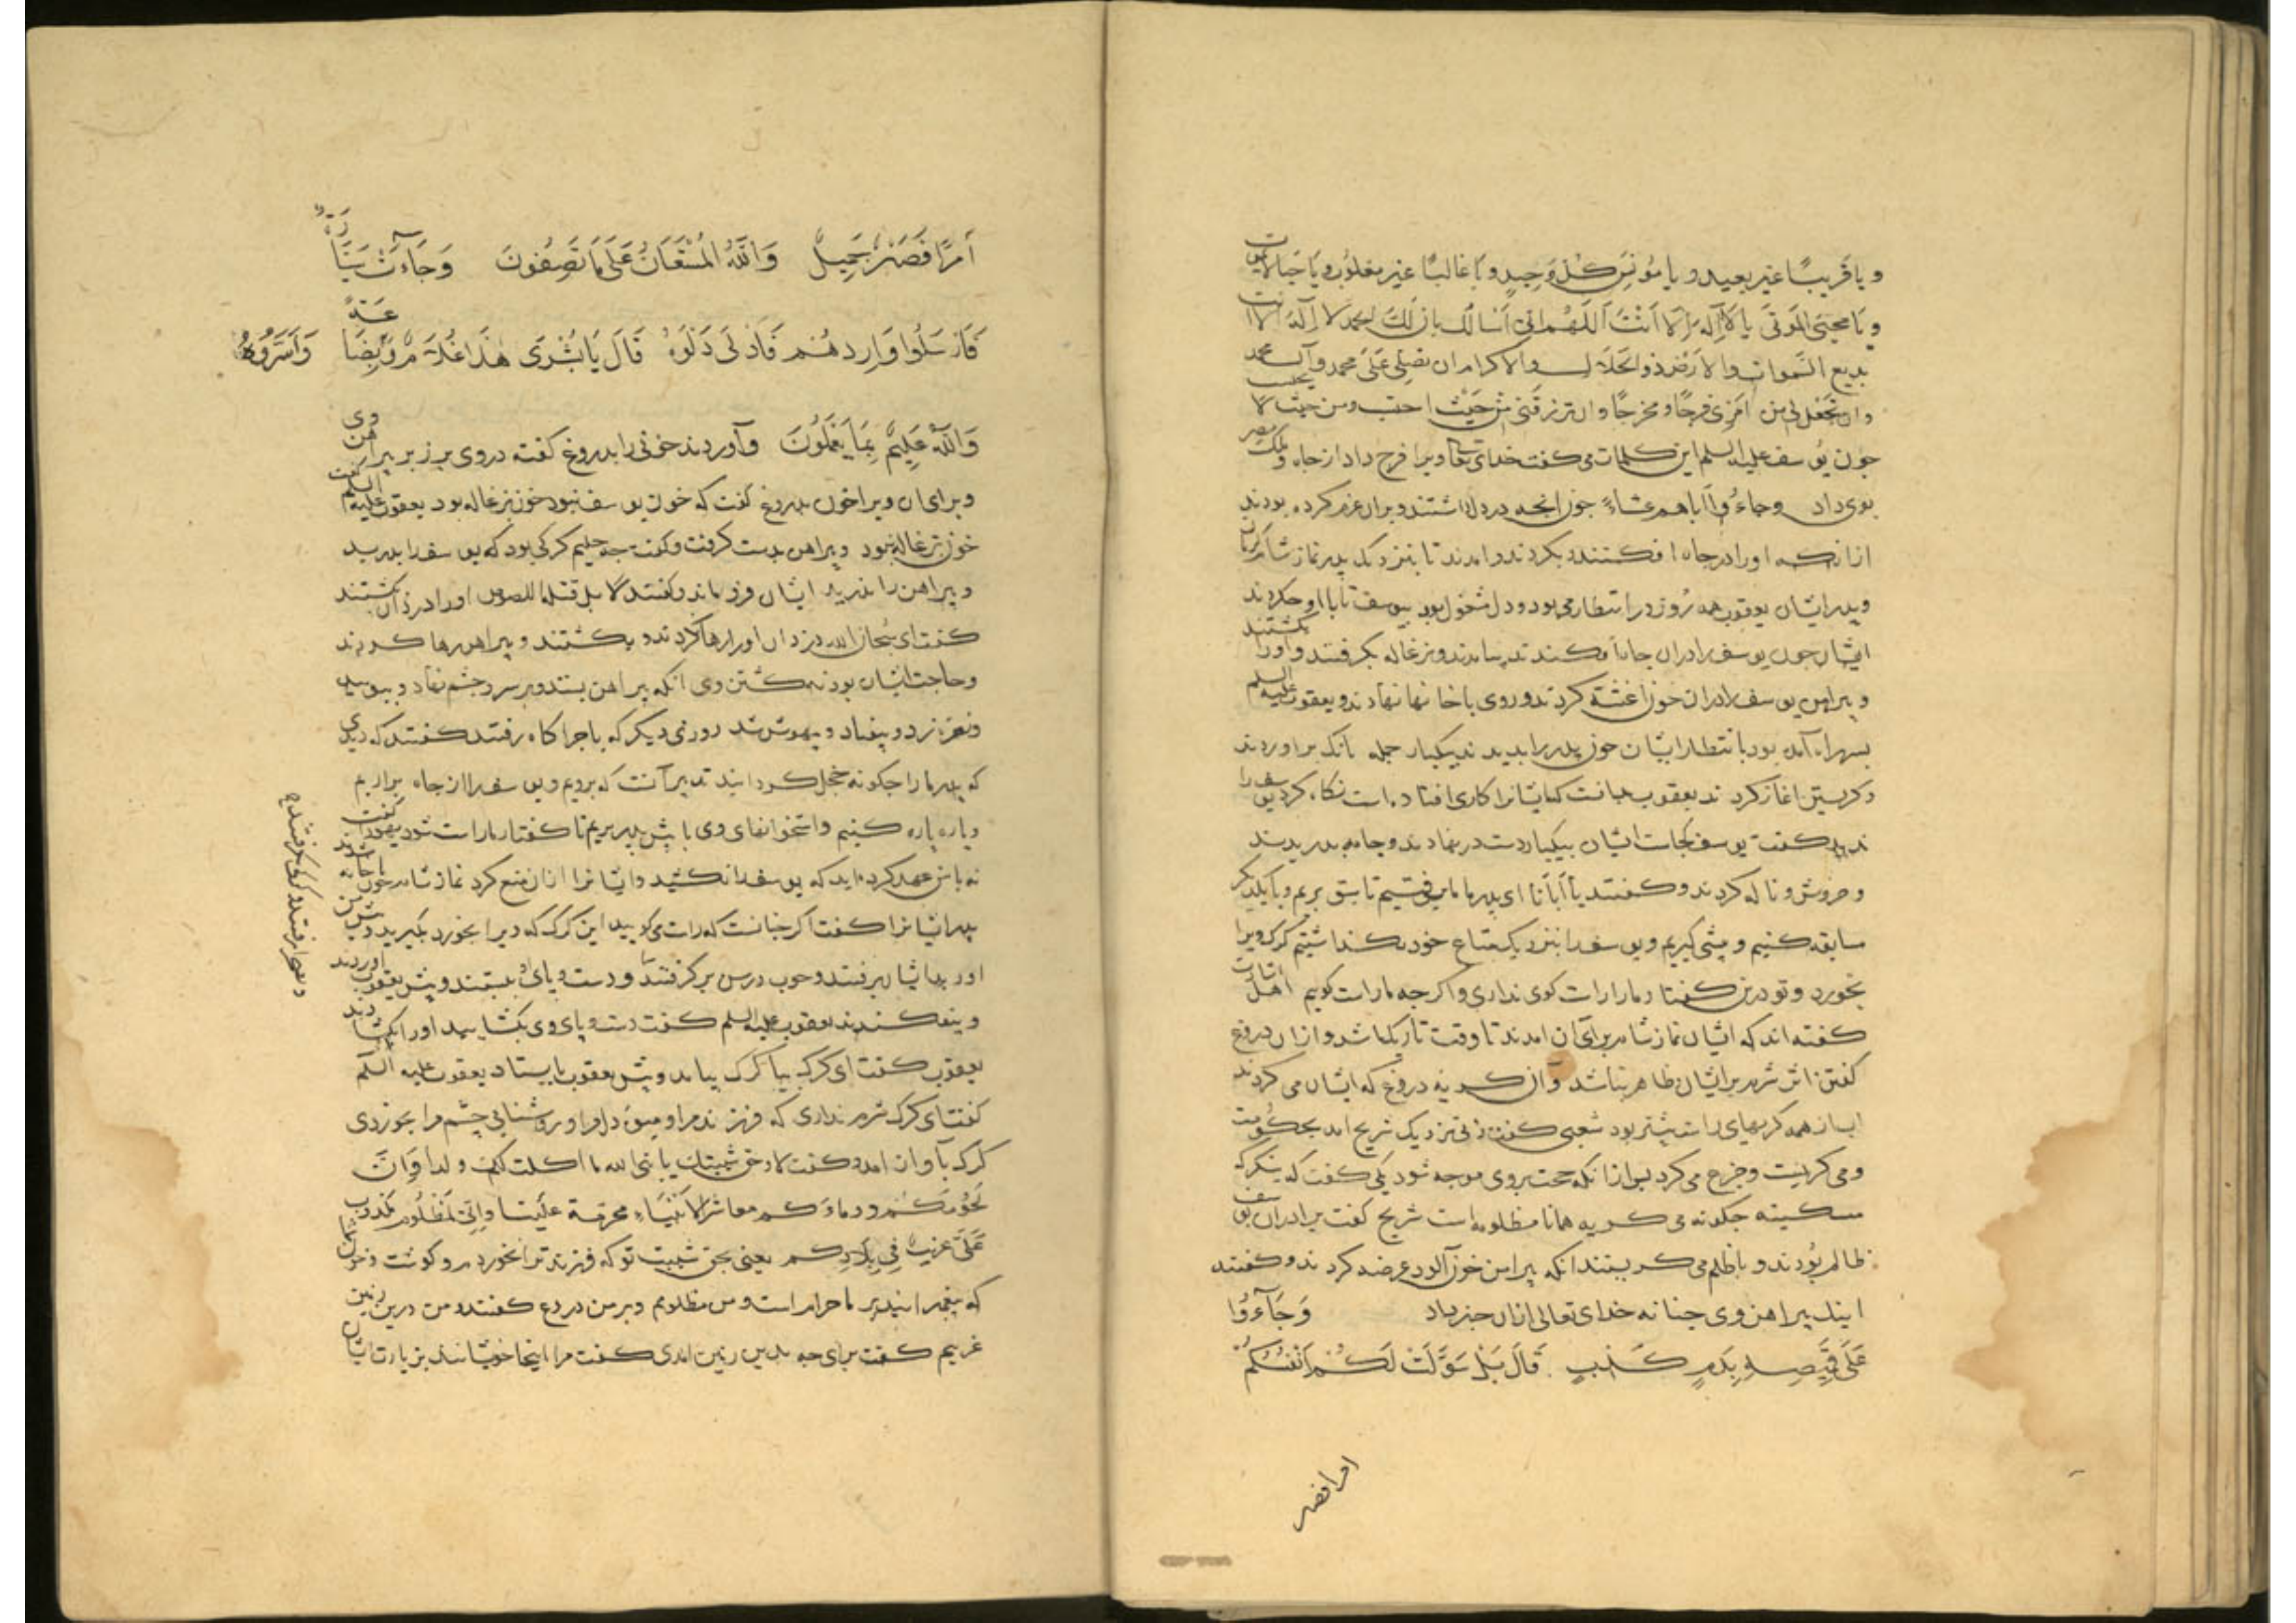 و یا قریبًا غیر بعید و یا مؤنس کل وحید و یا غالبًا غیر مغلوب و یا حیا لایموت
و یا محیی الموتی یا لا اله الا انت اللهم انی اسألک بان لک الحمد لا اله الا انت
بدیع السموات والارض ذوالجلال والاکرام ان تصلی علی محمد وآل محمد
وان تجعل لی من امری فرجًا و مخرجًا وان ترزقنی من حیث احتسب ومن حیث لا یحتسب
جون یوسف علیه السلم این کلمات می کفت خدای تعالی ویرا فرج داد از جاه و ملکت مصر
بوی داد وجاءُوا اباهم عشاءً جون انجه در دل داشتند و بران عزم کرده بودند
از انکه اورا در جاه افکنند بکردند و امدند تا بنزدیک بدر نماز شام کریان
وبدر ایشان یعقوب همه روز در انتظار می بود و دل مشغول بود بیوسف تا با او جکردند
ایشان جون یوسف را دران جاه افکندند بیامدند و بزغاله بکرفتند و اورا بکشتند
و پیراهن یوسف را دران خون اغشته کردند و روی با خانها نهادند و یعقوب علیه السلم
بسر راه آمده بود با نتظار ایشان جون بدر را بدیدند بیکبار جمله بانک براوردند
و کریستن اغاز کردند یعقوب بدانست که ایشانرا کاری افتاده است نکاه کرد یوسف را
ندید کفت یوسف کجاست ایشان بیکبار دست در نهادند و جامه بدریدند
و خروش و ناله کردند و کفتند یا ابانا ای بدر ما ما برفتیم تا سبق بریم و با یکدیکر
مسابقه کنیم و پیشی کیریم و یوسف را بنزدیک متاع خود بکذاشتیم کرک ویرا
بخورد و تو درین کفتار ما را راست کوی نداری و اکر جه ما راست کوییم اهل اشارت
کفته اند که ایشان نماز شام برای آن امدند تا وقت تاریک باشد و ازان دروغ
کفتن اثر شرم بر ایشان ظاهر نباشد و آن کریه دروغ که ایشان می کردند
از همه کریهای راست بیشتر بود شعبی کفت زنی نزدیک شریح امد بحکومت
ومی کریست و جزع می کرد بس ازانکه حجت بروی موجه شود یکی کفت که بنکر که
مسکینه جکونه می کرید همانا مظلومه است شریح کفت برادران یوسف
ظالم بودند و با ظلم می کریستند انکه پیراهن خون آلود عرضه کردند و کفتند
اینک پیراهن وی جنانه خدای تعالی ازان خبر داد وَجَآءُوا
عَلَی قَمِیصِهِ بِدَمٍ کَذِبٍ قَالَ بَلْ سَوَّلَتْ لَکُمْ اَنْفُسُکُمْ
امرا فصبر
اَمْرًا فَصَبْرٌ جَمِیلٌ وَاللّٰهُ الْمُسْتَعَانُ عَلَی مَا تَصِفُونَ وَجَآءَتْ سَیَّارَةٌ
فَاَرْسَلُوا وَارِدَهُمْ فَاَدْلَی دَلْوَهُ قَالَ یَا بُشْرَی هٰذَا غُلَامٌ وَاَسَرُّوهُ بِضَاعَةً
وَاللّٰهُ عَلِیمٌ بِمَا یَعْمَلُونَ وآوردند خونی را بدروغ کفته در وی بر زبر پیراهن وی
و برای ان ویرا خون بدروغ کفت که خون یوسف نبود خون بزغاله بود یعقوب علیه السلم کفت
خون بزغاله نبود و پیراهن بدست کرفت و کفت جه حلیم کرکی بود که یوسف را بدرید
و پیراهن را ندرید ایشان فرو ماندند و کفتند لا بل قتله اللصوص اورا دزدان بکشتند
کفت ای سبحان الله دزدان اورا رها کردند و بکشتند و پیراهن رها کردند
و حاجت ایشان بود نه بکشتن وی انکه پیراهن بستد و بر سر و جشم نهاد و ببوسید
و نعره بزد و بیفتاد و بیهوش شد روزی دیکر که باجراکاه رفتند کفتند که دیدی
که بدر ما را جکونه خجل کردانید تدبیر آنست که برویم و یوسف را از جاه براریم
و پاره پاره کنیم و استخوانهای وی با پیش بدر بریم تا کفتار ما راست شود یهودا کفت
نه با من عهد کرده اید که یوسف را نکشید و ایشانرا ازان منع کرد نماز شام جون با خانه شدند
بدر ایشانرا کفت اکر جنانست که راست می کویید این کرک که ویرا بخورد بکیرید و پیش من
اورید ایشان برفتند و جوب و رسن بر کرفتند و دست و پای بستند و پیش یعقوب اوردند
و بیفکندند یعقوب علیه السلم کفت دست و پای وی بکشایید اورا بکشادند
یعقوب کفت ای کرک بیا کرک بیامد و پیش یعقوب بایستاد یعقوب علیه السلم
کفت ای کرک شرم نداری که فرزند مرا و میوهٔ دل مرا و روشنائی جشم مرا بخوردی
کرک بآواز امد و کفت لا و حق شیبتک یا نبی الله ما اکلت لک ولدا وَاِنَّ
لُحُومَکُمْ و دماءَکم معاشر الانبیاءِ محرمة علینا وانی لمظلوم مکذوب
عَلَیَّ غریب فی بلادکم یعنی بحق شیبت تو که فرزند ترا نخوردم و کوشت و خون شما
که پیغمبرانید بر ما حرام است و من مظلومم و بر من دروغ کفتند و من درین زمین
غریبم کفت برای جه بدین زمین امدی کفت مرا اینجا خویشانند بزیارت ایشان
و بصحرا رفتند و کرکی بکرفتند